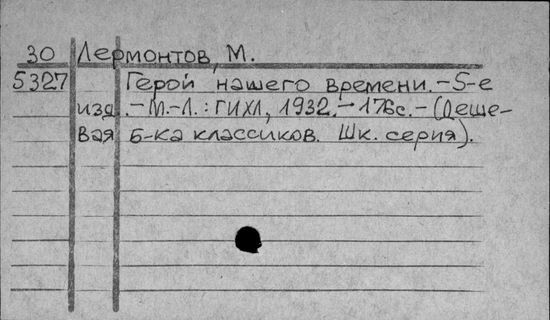 30 Лермонтов, М.
5327 Герой нашего времени. - 5-е
изд. - М.-Л.: ГИХЛ, 1932. - 176с. - (Деше-
вая б-ка классиков. Шк. серия).